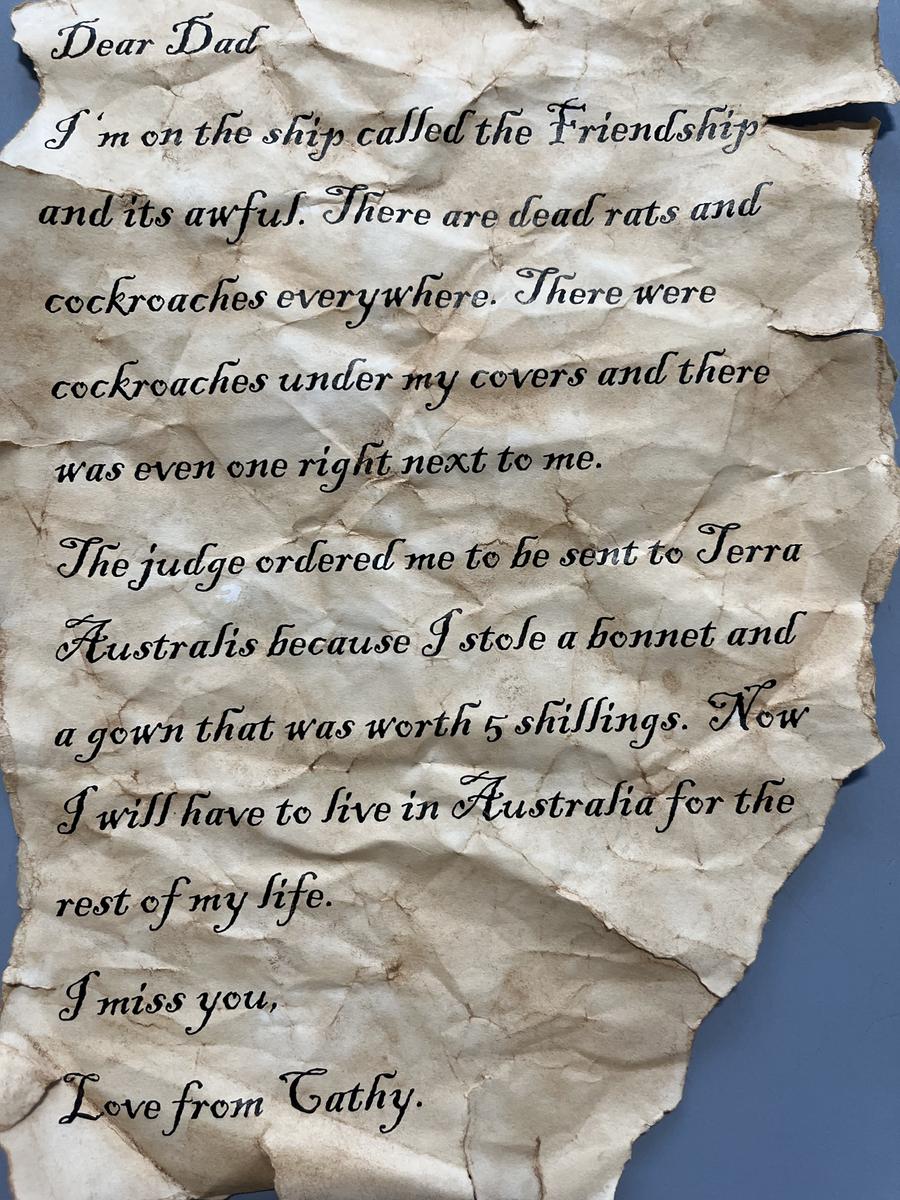 Dear Dad
I'm on the ship called the Friendship
and its awful. There are dead rats and
cockroaches everywhere. There were
cockroaches under my covers and there
was even one right next to me.
The judge ordered me to be sent to Terra
Australis because I stole a bonnet and
a gown that was worth 5 shillings. Now
I will have to live in Australia for the
rest of my life.
I miss you,
Love from Cathy.